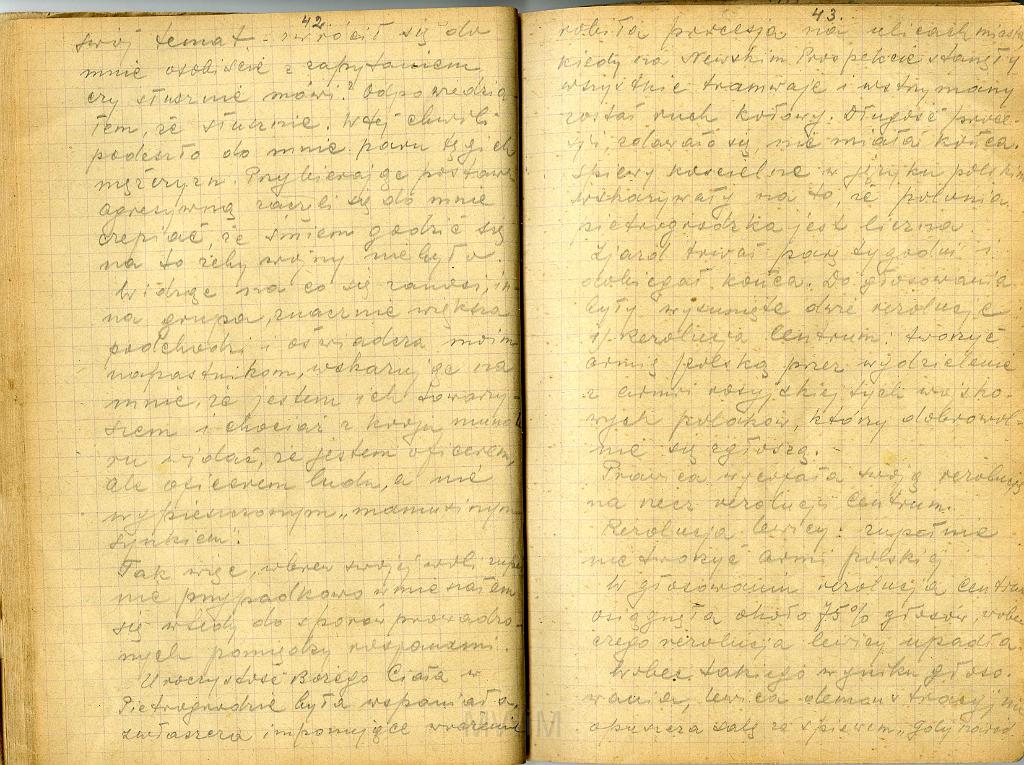 42.
swój temat - zwrócił się do
mnie osobiście z zapytaniem
czy słusznie mówi? Odpowiedzia
łem, że słusznie. W tej chwili
podeszło do mnie paru tęgich
mężczyzn. Przybierając postawę
agresywną zaczęli się do mnie
czepiać, że śmiem godzić się
na to żeby wojny nie było.
Widząc na co się zanosi, in
na grupa, znacznie większa
podchodzi i oświadcza moim
napastnikom, wskazując na
mnie, że jestem ich towarzy-
szem i chociaż z kroju mundu
ru widać, że jestem oficerem,
ale oficerem ludu, a nie
wypieszczonym „mamusinym
synkiem".
Tak więc, wbrew swojej woli, zupeł
nie przypadkowo wmieszałem
się wtedy do sporów prowadzo-
nych pomiędzy rosjanami.
Uroczystość Bożego Ciała w
Pietrogrodzie była wspaniała,
zwłaszcza imponujące wrażenie
43.
robiła procesja na ulicach miasta
kiedy na Newskim Prospekcie stanęły
wszystkie tramwaje i wstrzymany
został ruch kołowy. Długość proce-
sji, zdawało się, nie miała końca.
Śpiewy kościelne w języku polskim
wskazywały na to, że polonia
pietrogradzka jest liczna.
Zjazd trwał parę tygodni i
dobiegał końca. Do głosowania
były wysunięte dwie rezolucje
1) Rezolucja Centrum: tworzyć
armię polską przez wydzielenie
z armii rosyjskiej tych wojsko-
wych polaków, którzy dobrowol-
nie się zgłoszą.
Prawica wycofała swoją rezolucję
na rzecz rezolucji Centrum.
Rezolucja lewicy: zupełnie
nie tworzyć armii polskiej
W głosowaniu rezolucja centrum
osiągnęła około 75% głosów, wobec
czego rezolucja lewicy upadła.
Wobec takiego wyniku głoso-
wania, lewica demonstracyjnie
opuszcza salę ze śpiewem „Gdy naród